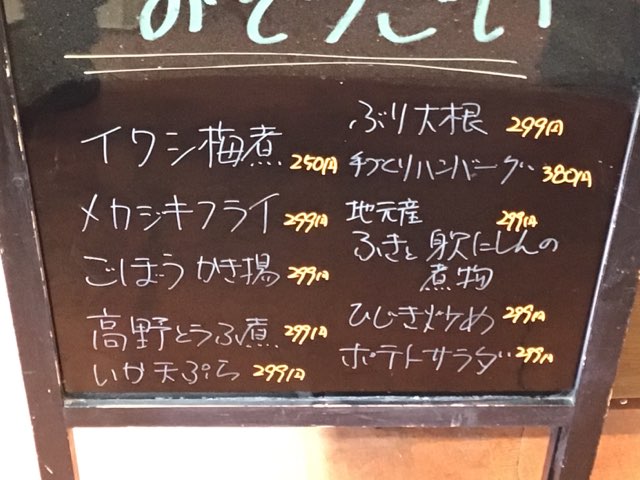 おそうざい
イワシ梅煮 250円
メカジキフライ 299円
ごぼうかき揚 299円
高野とうふ煮 299円
いか天ぷら 299円
ぶり大根 299円
手づくりハンバーグ 380円
地元産 299円
ふきと身欠にしんの
煮物
ひじき炒め 299円
ポテトサラダ 299円